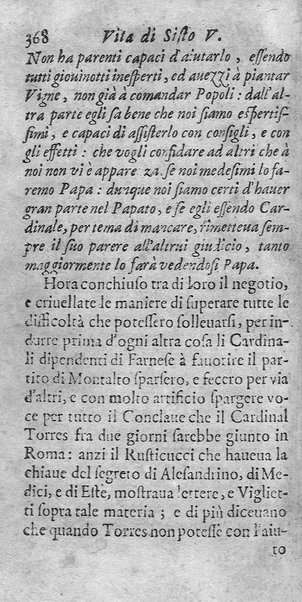 368 Vita di Sisto V.
Non ha parenti capaci d'aiutarlo, essendo
tutti giouinotti inesperti, ed auezzi à piantar
Vigne, non già à comandar Popoli: dall'al-
tra parte egli sa bene che noi siamo espertis-
simi, e capaci di assisterlo con consigli, e con
gli effetti: che vogli confidare ad altri che à
noi non vi è appare za. se noi medesimi lo fa-
remo Papa: dunque noi siamo certi d'hauer
gran parte nel Papato, e se egli essendo Car-
dinale, per tema di mancare, rimetteua sem-
pre il suo parere all'altrui giudicio, tanto
maggiormente lo farà vedendosi Papa.
Hora conchiuso tra di loro il negotio,
e criuellate le maniere di superare tutte le
difficoltà che potessero solleuarsi, per in-
durre prima d'ogni altra cosa li Cardina-
li dipendenti di Farnese à fauorire il par-
tito di Montalto sparsero, e fecero per via
d'altri, e con molto artificio spargere vo-
ce per tutto il Conclaue che il Cardinal
Torres fra due giorni sarebbe giunto in
Roma: anzi il Rusticucci che haueua la
chiaue del segreto di Alesandrino, di Me-
dici, e di Este, mostraua lettere, e Vigliet-
ti sopra tale materia; e di più diceuano
che quando Torres non potesse con l'aiu-
to